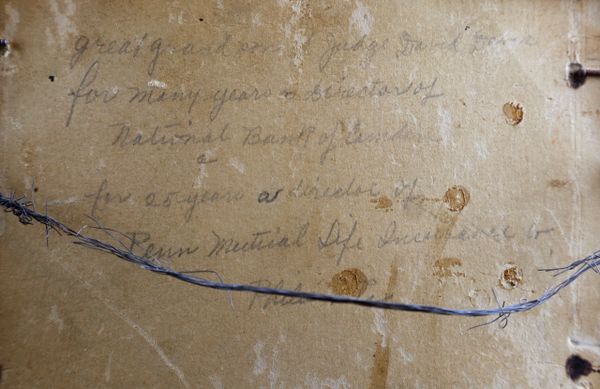 great grand son of Judge David Davis
for many years a director of
National Bank of Camden
a
for 25 years a director of
Penn Mutual Life Insurance Co
Phila